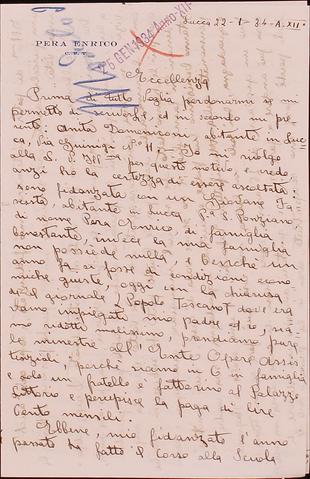 PERA ENRICO
Lucca 22-1-34-A.XII°
25 GEN. 1934 Anno XII
Eccellenza
Prima di tutto Voglia perdonarmi se mi
permetto di scriverle, ed in secondo mi pre-
sento: Anita Domeniconi, abitante in Luc-
ca, Via Guinigi N° 11 - Io mi rivolgo
alla S. V. Ill.ma per questo motivo, e vedo,
anzi ho la certezza di essere ascoltata:
sono fidanzata con un Giovane Fa-
scista, abitante in Lucca P.a S. Ponziano
di nome Pera Enrico, di famiglia
benestante, invece la mia famiglia
non possiede nulla, e benchè un
anno fa si fosse di condizioni econo-
miche giuste, oggi con la chiusura
del giornale "Popolo Toscano" dove era-
vamo impiegati mio padre ed io, sia-
mo ridotti malissimo, prendiamo pure
le minestre all'Ente Opere Assis-
tenziali, perchè siamo in 6 in famiglia
e solo un fratello è fattorino al Palazzo
Littorio e percepisce la paga di lire
Cento mensili.
Ebbene, mio fidanzato l'anno
passato ha fatto il corso alla Scuola